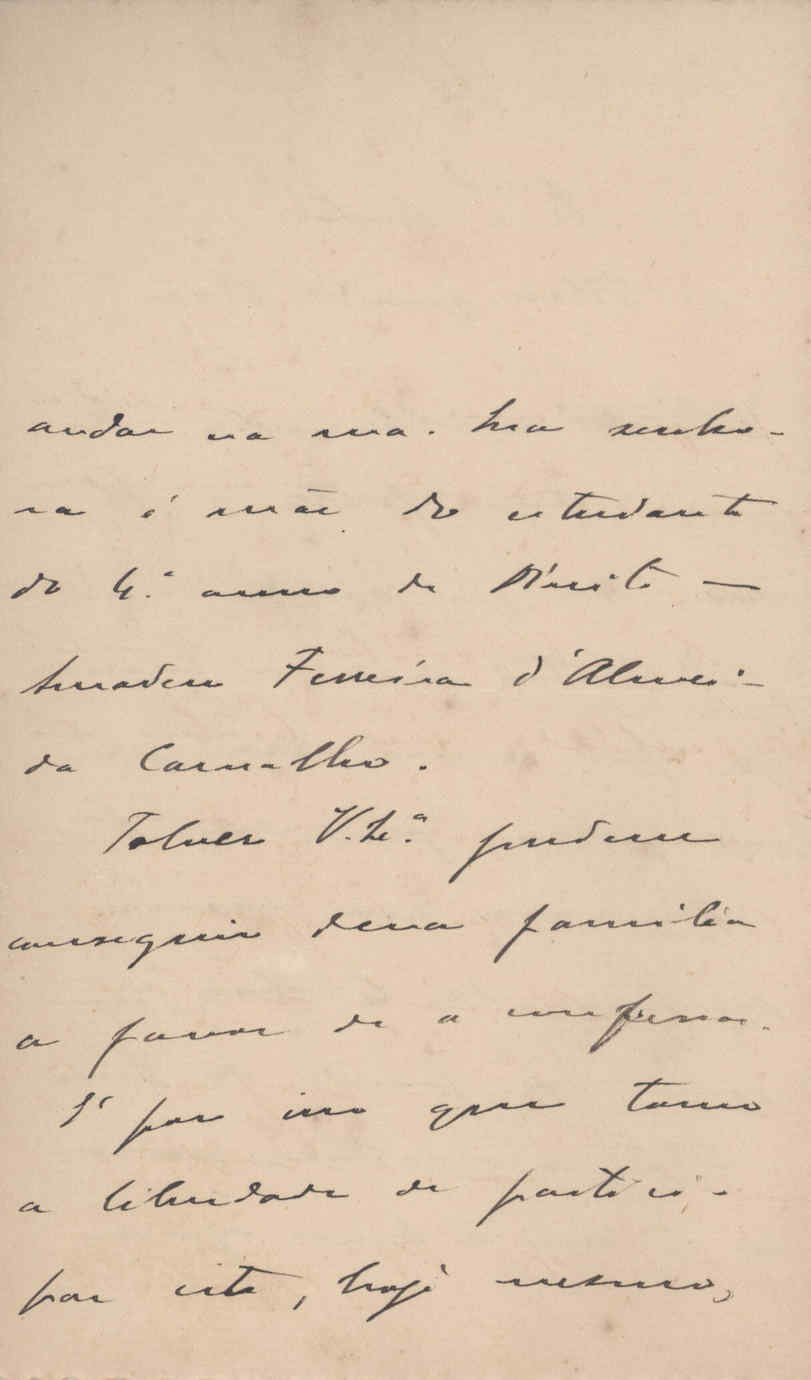 andar na rua. Essa senho-
ra é mãe do estudante
do 4.º anno de Direito —
Amadeu Ferreira d'Almei-
da Carvalho.
Talvez V. Ex.ª podesse
conseguir dessa familia
o favor de o confessar.
É por isso que tomo
a liberdade de partici-
par isto, hoje mesmo,